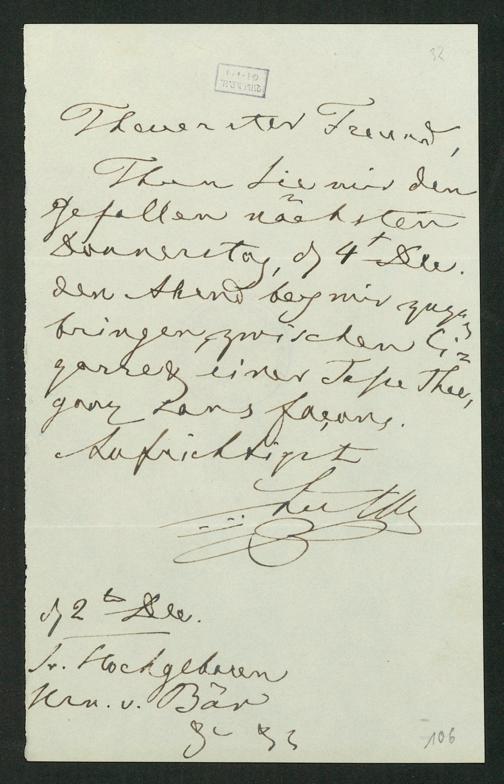 32
Theuerster Freund,
Thun Sie mir den
gefallen nächsten
Donnerstag, d 4t Dec.
den Abend bey mir zuzu
bringen, zwischen Ci
garre & einer Tasse Thee,
ganz sans façons.
Aufrichtigst
d 2ts Dec.
Sr. Hochgeboren
Hrn. v. Bär
106